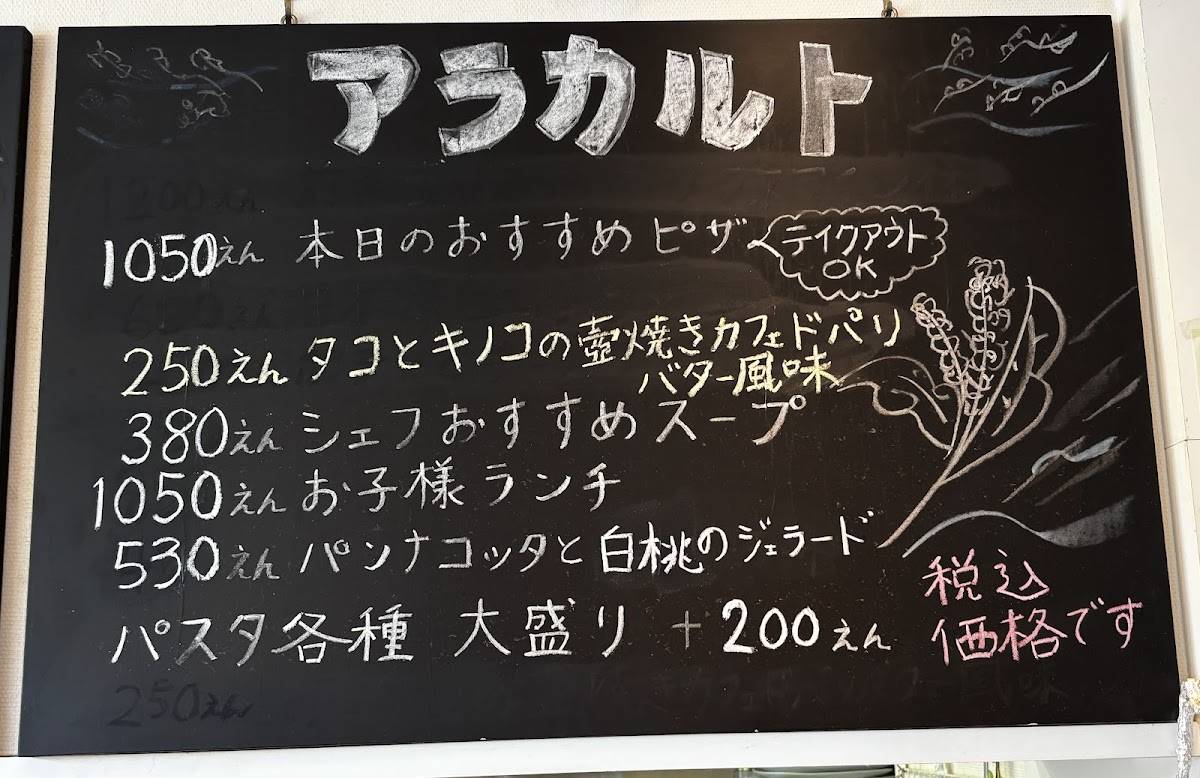 アラカルト
1050えん 本日のおすすめピザ
テイクアウト
OK
250えん タコとキノコの壺焼きカフェドパリ
バター風味
380えん シェフおすすめスープ
1050えん お子様ランチ
530えん パンナコッタと白桃のジェラード
パスタ各種 大盛り +200えん
税込
価格です
250えん